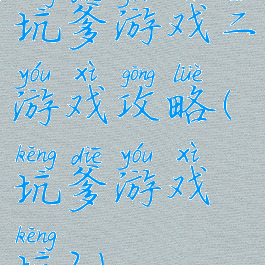 坑爹游戏二
yóu xì gōng lüè
游戏攻略(
kēng diē yóu xì
坑爹游戏
kēng